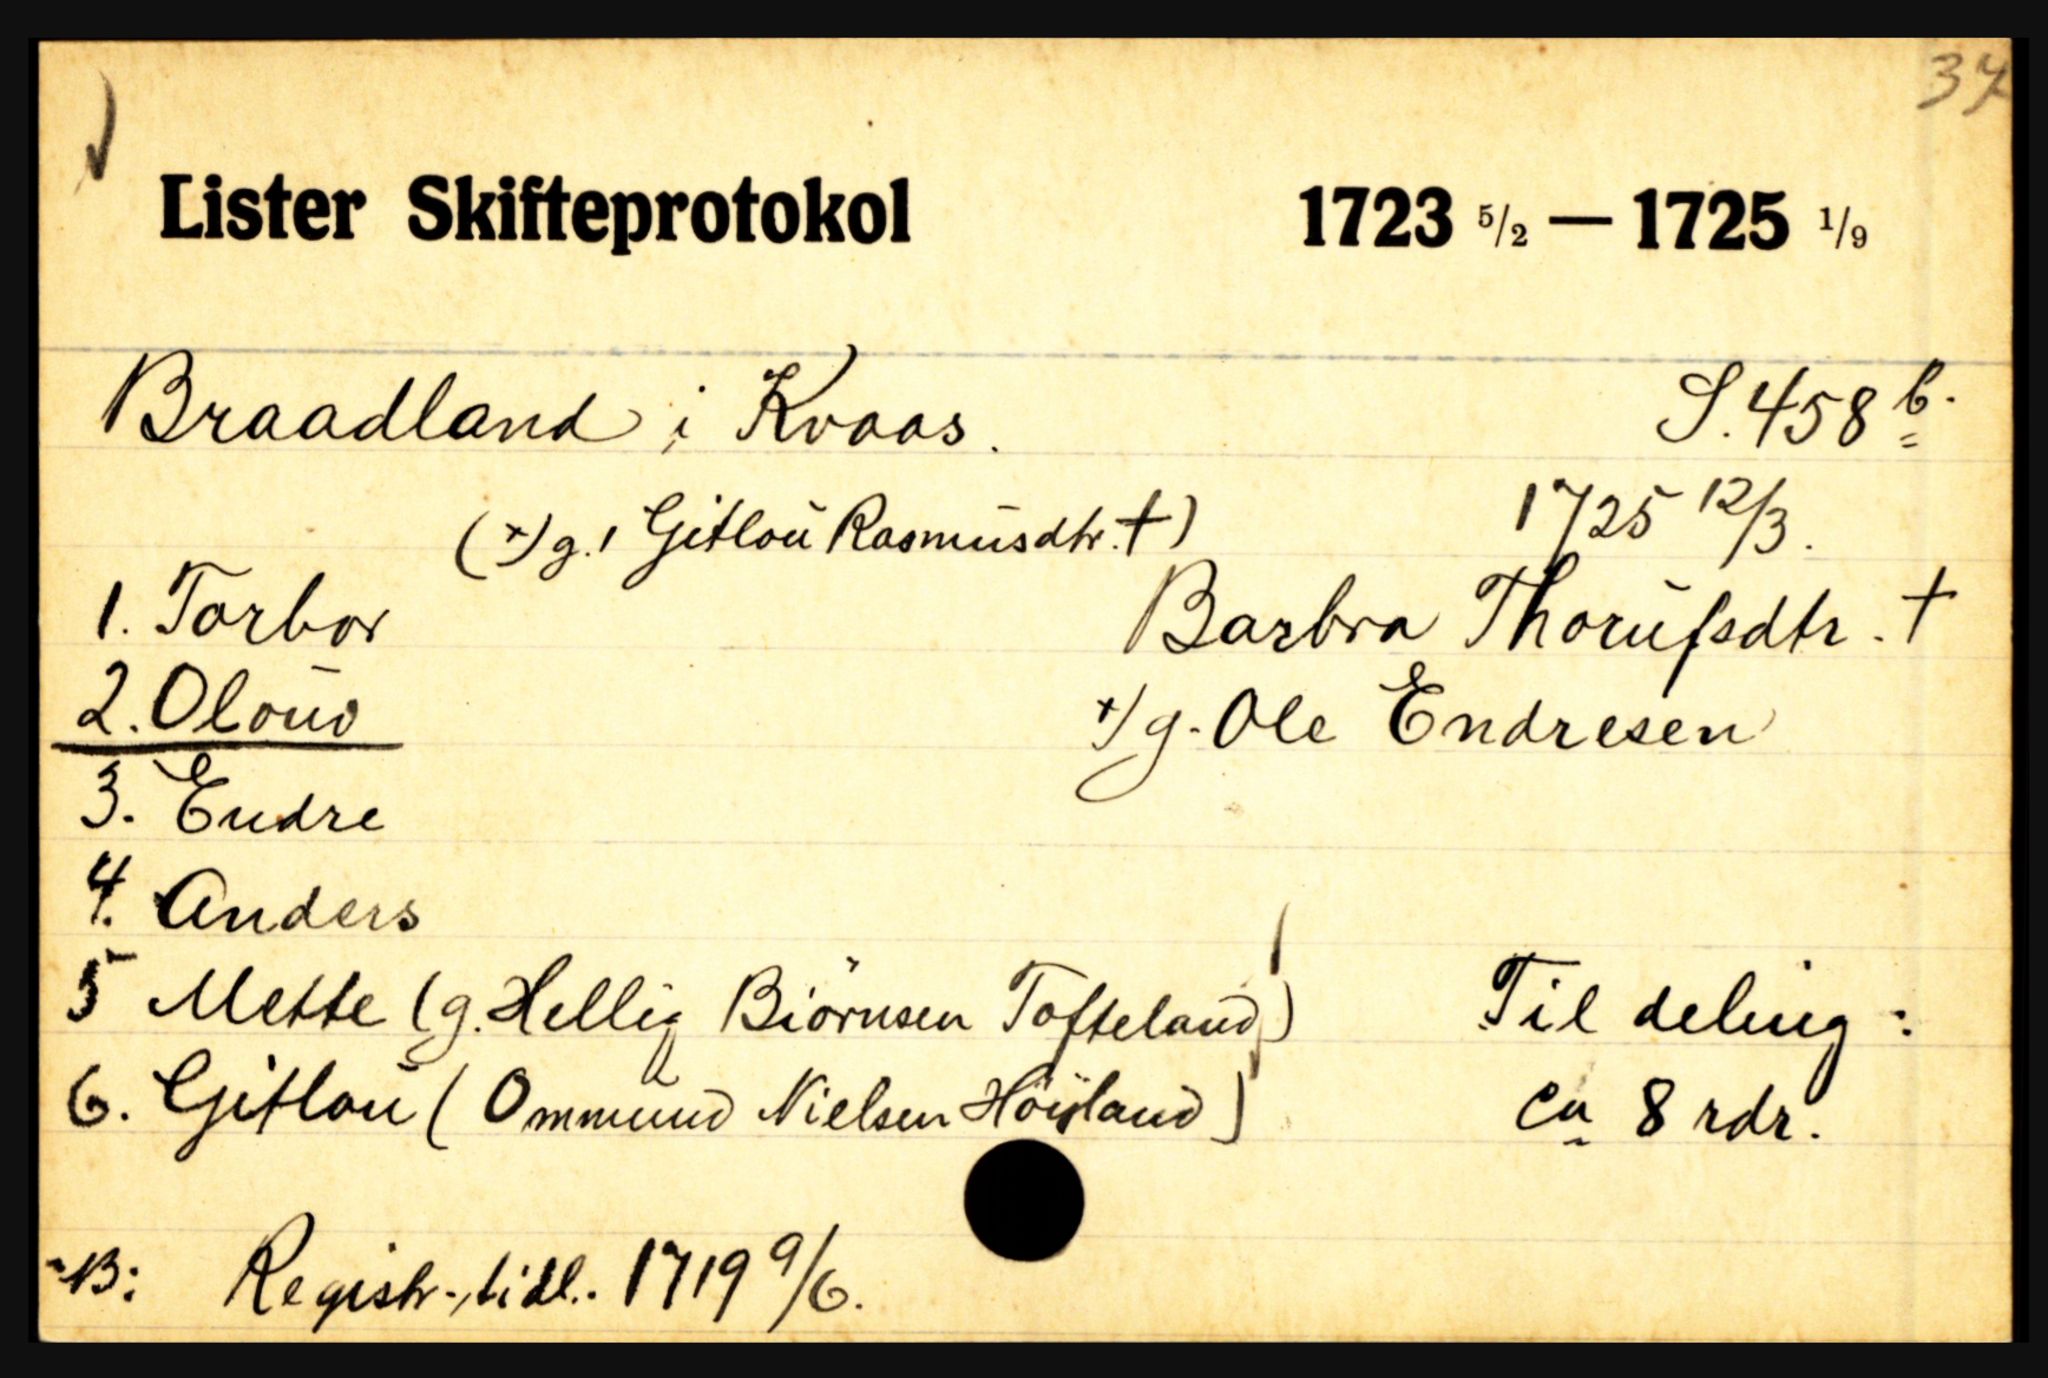 37
Lister Skifteprotokol 1723 5/2 — 1725 1/9
Braadland i Kvaas. S. 458 b.
(+/g. 1 Gitloŭ Rasmŭsdtr. †) 1725 12/3.
1. Torbor Barbra Thorŭfsdtr. †
2. Oloŭv +/g. Ole Endresen
3. Endre
4. Anders
5 Mette (g. Hellig Biörnsen Tofteland) Til deling:
6. Gitloŭ (Ommund Nielsen Höiland) ca 8 rdr.
NB: Registr. tidl. 1719 9/6.